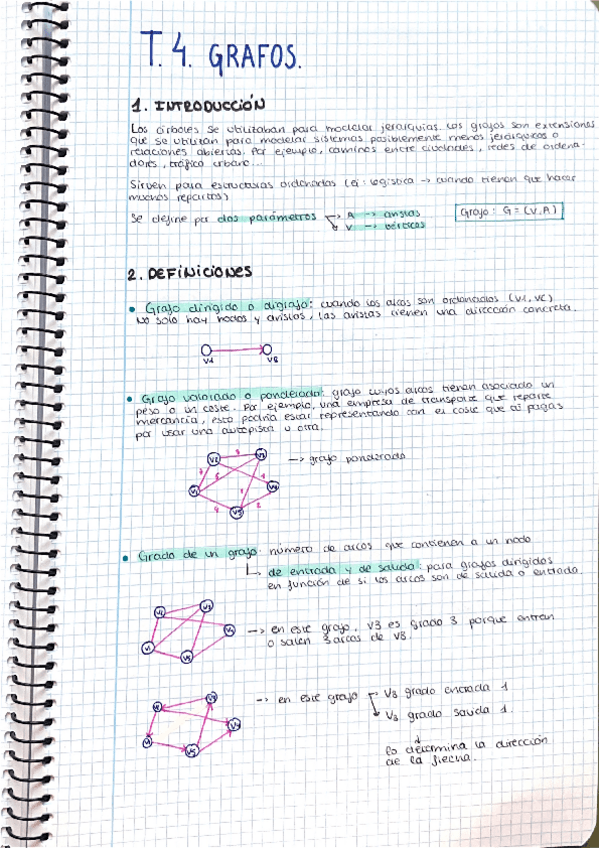 T. 4. GRAFOS.
1. INTRODUCCIÓN
Los árboles se utilizaban para modelar jerarquías. Los grafos son extensiones
que se utilizan para modelar sistemas posiblemente menos jerárquicos o
relaciones abiertas. Por ejemplo, caminos entre ciudades, redes de ordena-
dores, tráfico urbano...
Sirven para estructuras ordenadas (ej: logística → cuando tienen que hacer
muchos repartos)
Se define por dos parámetros → A → aristas
V → vértices
Grafo: G = (V, A)
2. DEFINICIONES
• Grafo dirigido o digrafo: cuando los arcos son ordenados
No solo hay nodos y aristas, las aristas tienen una dirección concreta.
• Grafo valorado o ponderado: grafo cuyos arcos tienen asociado un
peso o un coste. Por ejemplo, una empresa de transporte que reparte
mercancía, esto podría estar representando con el coste que
por usar una autopista u otra.
→ grafo ponderado
• Grado de un grafo: número de arcos que contienen a un nodo
de entrada y de salida: para grafos dirigidos
en función de si los arcos son de salida o entrada.
→ en este grafo, V3 es grado 3 porque entran
o salen 3 arcos de V3.
→ en este grafo → V3 grado entrada 1
V3 grado salida 1.
lo determina la dirección
de la flecha.